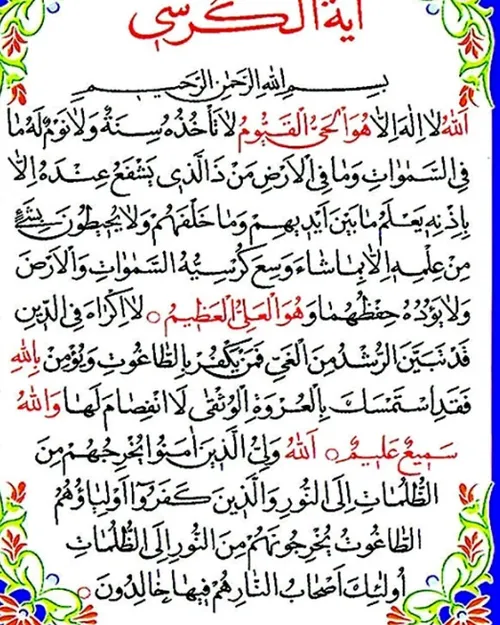 آیة الکرسی
بِسْمِ اللهِ الرَّحْمٰنِ الرَّحِیمِ
اَللهُ لَا اِلٰهَ اِلَّا هُوَ الْحَیُّ الْقَیُّومُ لَا تَأْخُذُهُ سِنَةٌ وَلَا نَوْمٌ لَهُ مَا
فِی السَّمٰوَاتِ وَمَا فِی الْاَرْضِ مَنْ ذَا الَّذِی یَشْفَعُ عِنْدَهُ اِلَّا
بِاِذْنِهِ یَعْلَمُ مَا بَیْنَ اَیْدِیهِمْ وَمَا خَلْفَهُمْ وَلَا یُحِیطُونَ بِشَیْءٍ
مِنْ عِلْمِهِ اِلَّا بِمَا شَاءَ وَسِعَ كُرْسِیُّهُ السَّمٰوَاتِ وَالْاَرْضَ
وَلَا یَؤُدُهُ حِفْظُهُمَا وَهُوَ الْعَلِیُّ الْعَظِیمُ ○ لَا اِكْرَاهَ فِی الدِّینِ
قَدْ تَبَیَّنَ الرُّشْدُ مِنَ الْغَیِّ فَمَنْ یَكْفُرْ بِالطَّاغُوتِ وَیُؤْمِنْ بِاللهِ
فَقَدِ اسْتَمْسَكَ بِالْعُرْوَةِ الْوُثْقٰی لَا انْفِصَامَ لَهَا وَاللهُ
سَمِیعٌ عَلِیمٌ ○ اَللهُ وَلِیُّ الَّذِینَ اٰمَنُوا یُخْرِجُهُمْ مِنَ
الظُّلُمَاتِ اِلَی النُّورِ وَالَّذِینَ كَفَرُوا اَوْلِیَاؤُهُمُ
الطَّاغُوتُ یُخْرِجُونَهُمْ مِنَ النُّورِ اِلَی الظُّلُمَاتِ
اُولٰئِكَ اَصْحَابُ النَّارِ هُمْ فِیهَا خَالِدُونَ ○